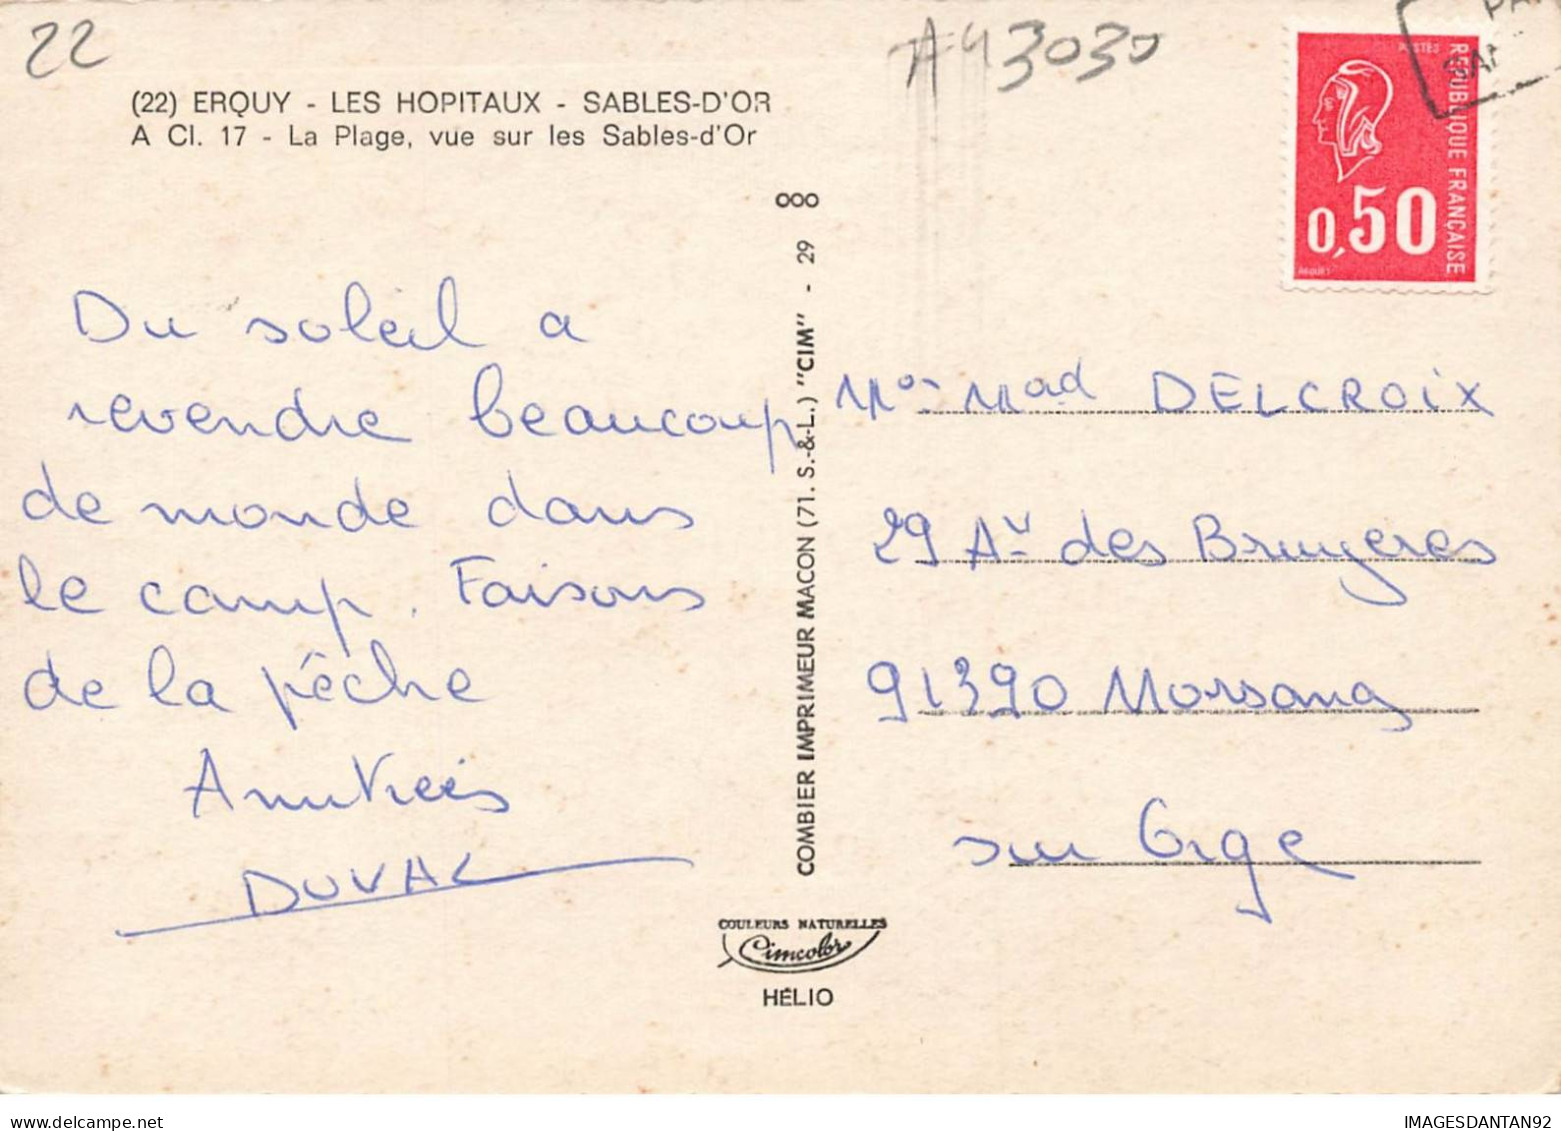 22
A43030
(22) ERQUY - LES HOPITAUX - SABLES-D'OR
A Cl. 17 - La Plage, vue sur les Sables-d'Or
POSTES
REPUBLIQUE FRANÇAISE
0,50
Du soleil a
revendre beaucoup
de monde dans
le camp. Faisons
de la pêche
Amitiés
DUVAL
COMBIER IMPRIMEUR MACON (71. S.-&-L.) "CIM" - 29 000
COULEURS NATURELLES
Cimcolor
HÉLIO
Mr Mad DELCROIX
29 Av des Bruyeres
91390 Morsang
sur Orge
delcampe.net
IMAGESDANTAN92